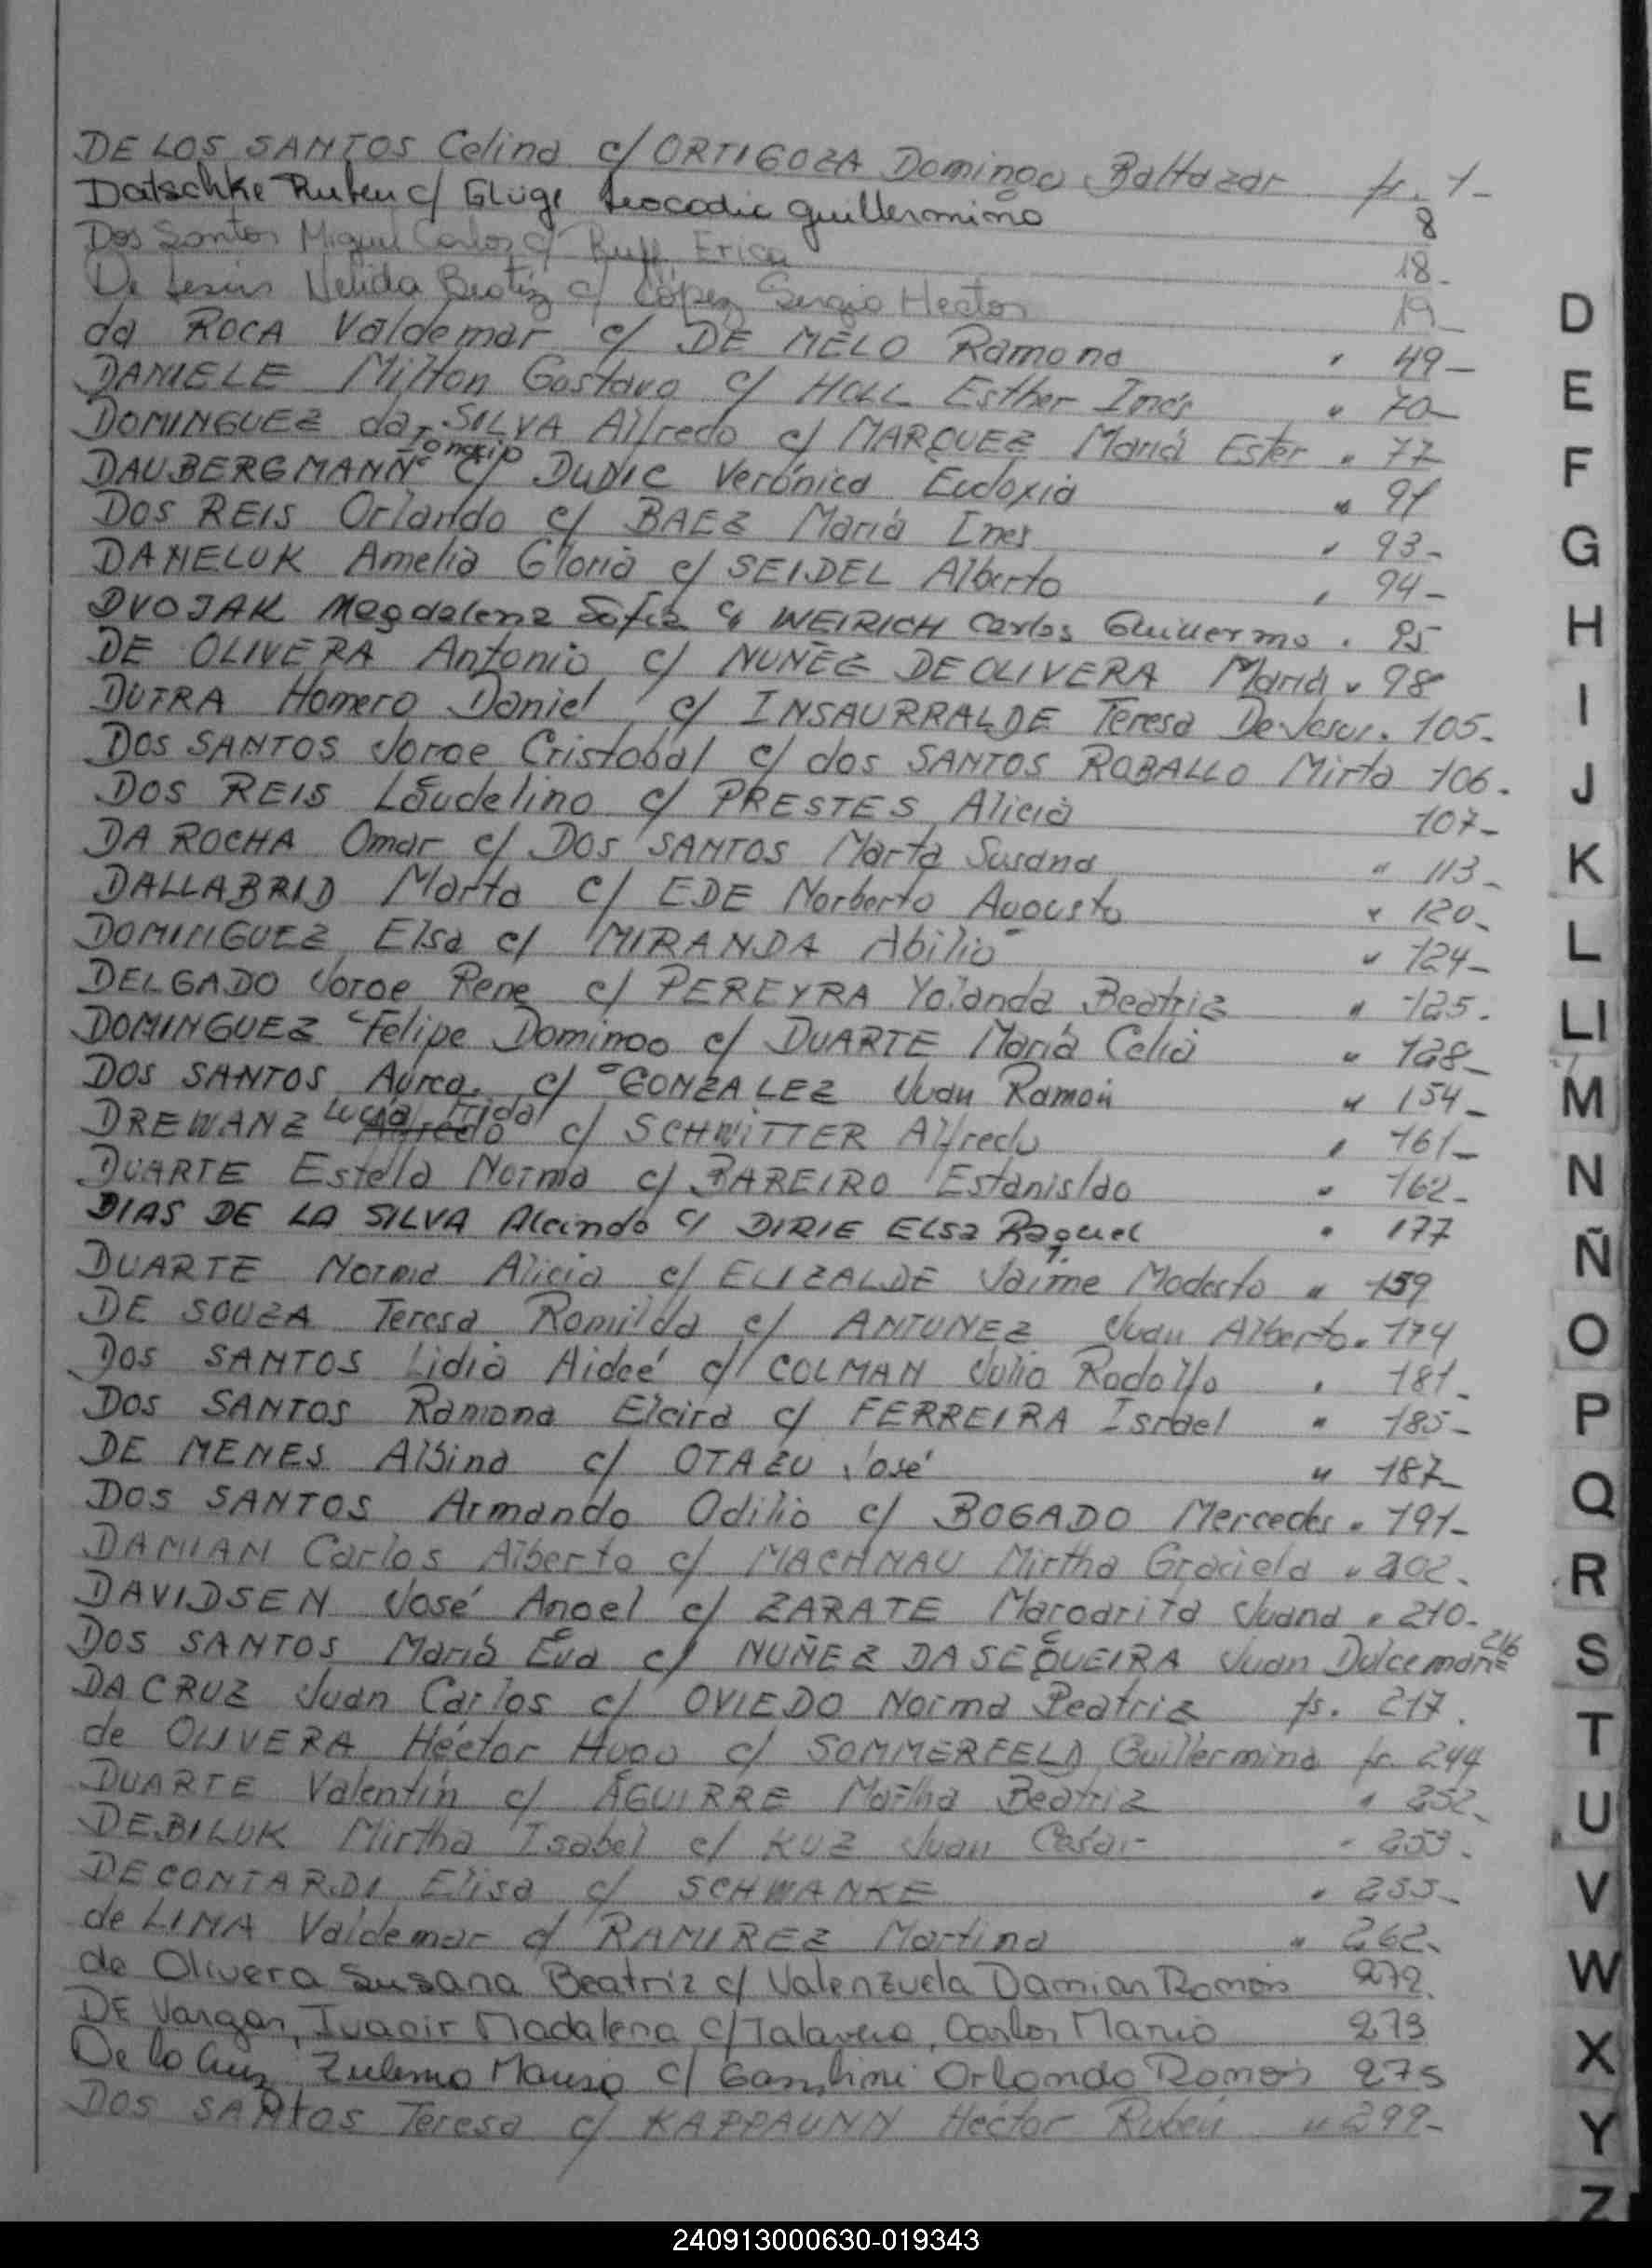 DE LOS SANTOS Celina c/ ORTIGOZA Domingo Baltazar fs. 1-
Datschke Ruben c/ Gluge Leocadia Guillermina 8
Dos Santos Miguel Carlos c/ Ruff, Erica 18-
De Jesus Nelida Beatriz c/ López Sergio Hector 19-
da ROCA Valdemar c/ DE MELO Ramona " 49-
DANIELE Milton Gustavo c/ HOLL Esther Inés " 70-
DOMINGUEZ da SILVA Alfredo c/ MARQUEZ María Ester " 77
DAUBERGMANN c/ DUDIC Verónica Eudoxia " 91
DOS REIS Orlando c/ BAEZ María Ines " 93-
DANELUK Amelia Gloria c/ SEIDEL Alberto " 94-
DVOJAK Magdalena Sofia c/ WEIRICH Carlos Guillermo . 95
DE OLIVERA Antonio c/ NUÑEZ DE OLIVERA María " 98
DUTRA Homero Daniel c/ INSAURRALDE Teresa De Jesus . 105-
DOS SANTOS Jorge Cristobal c/ dos SANTOS ROBALLO Mirta 106.
DOS REIS Laudelino c/ PRESTES Alicia 107-
DA ROCHA Omar c/ DOS SANTOS Marta Susana " 113-
DALLABRID Marta c/ EDE Norberto Augusto " 120-
DOMINGUEZ Elsa c/ MIRANDA Abilio " 124-
DELGADO Jorge Rene c/ PEREYRA Yolanda Beatriz " 125.
DOMINGUEZ Felipe Domingo c/ DUARTE María Celia " 128-
DOS SANTOS Aurea c/ GONZALEZ Juan Ramón " 154-
DREWANZ Lucía Frida Alfredo c/ SCHWITTER Alfredo " 161-
DUARTE Estela Norma c/ BAREIRO Estanislao " 162-
DIAS DE LA SILVA Alcindo c/ DIRIE ELSa Raquel " 177
DUARTE Norma Alicia c/ ELIZALDE Jaime Modesto " 159
DE SOUZA Teresa Romilda c/ ANTUNEZ Juan Alberto " 174
DOS SANTOS Lidia Aideé c/ COLMAN Julio Rodolfo " 181-
DOS SANTOS Ramona Elcira c/ FERREIRA Israel " 185-
DE MENES Albina c/ OTAZU José " 187-
DOS SANTOS Armando Odilio c/ BOGADO Mercedes " 191-
DAMIAN Carlos Alberto c/ MACHNAU Mirtha Graciela " 202-
DAVIDSEN José Angel c/ ZARATE Margarita Juana " 210-
DOS SANTOS María Eva c/ NUÑEZ DA SEQUEIRA Juan Dulcemar 216
DA CRUZ Juan Carlos c/ OVIEDO Norma Beatriz fs. 217.
de OLIVERA Héctor Hugo c/ SOMMERFELD Guillermina fs. 244
DUARTE Valentín c/ AGUIRRE Martha Beatriz " 252-
DEBILUK Mirtha Isabel c/ KUZ Juan Cesar " 253.
DECONTARDI Elisa c/ SCHWANKE " 255-
de LIMA Valdemar c/ RAMIREZ Martina " 262-
de Olivera Susana Beatriz c/ Valenzuela Damian Ramon 272.
DE Vargas, Ivanir Madalena c/ Talavera, Carlos Mario 273
De la Cruz Zulema Marisa c/ Orlando Ramon 275
DOS SANtOS Teresa c/ KAPPAUNN Héctor Rubén " 299-
D
E
F
G
H
I
J
K
L
Ll
M
N
Ñ
O
P
Q
R
S
T
U
V
W
X
Y
Z
240913000630-019343